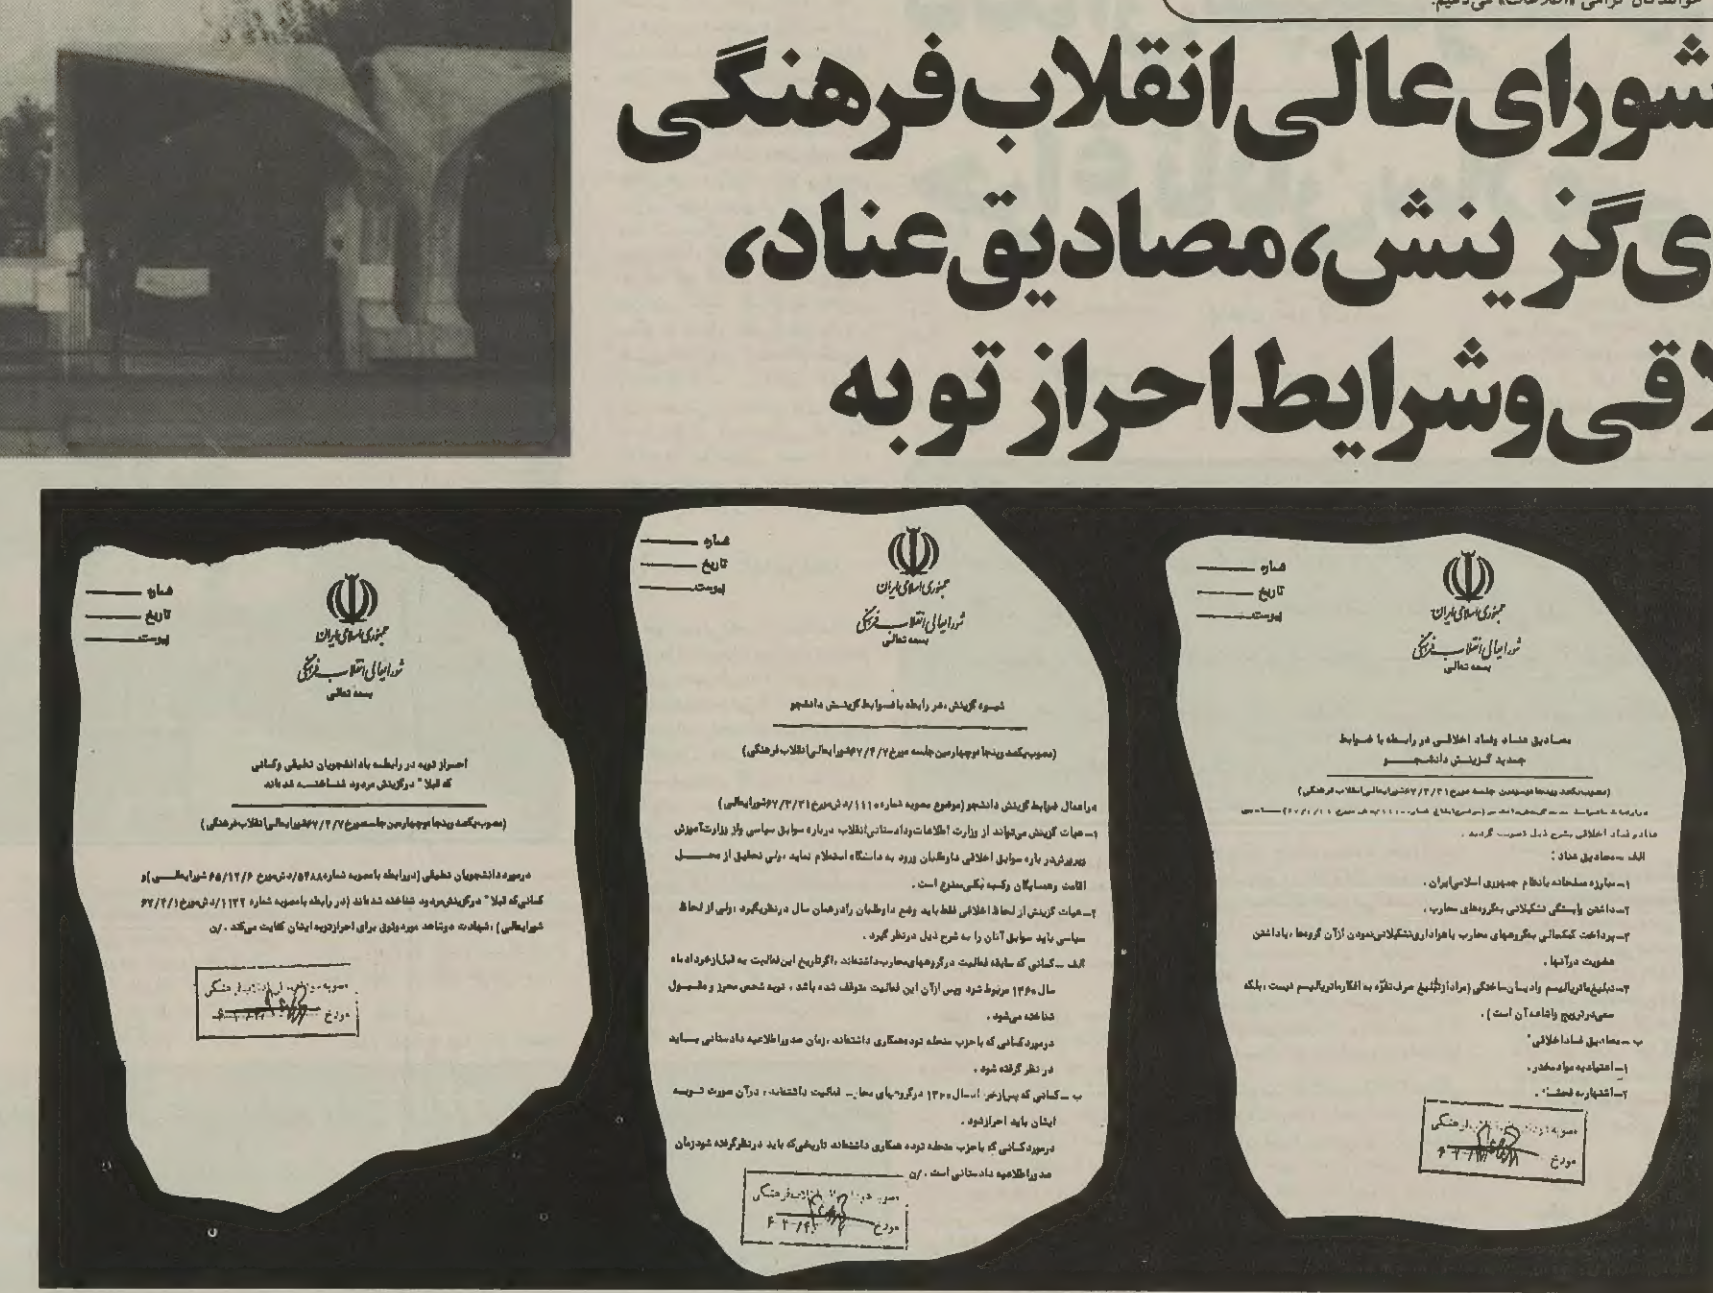 خوانندگان گرامی «اطلاعات» می‌دهیم.
شورای عالی انقلاب فرهنگی
ی گزینش، مصادیق عناد،
لاقی و شرایط احراز توبه
شماره
تاریخ
پیوست
جمهوری اسلامی ایران
شورایعالی انقلاب فرهنگی
بسمه تعالی
مصادیق عناد وفساد اخلاقی در رابطه با ضوابط
جدید گزینش دانشجو
(مصوب یکصد وپنجا هوسیمین جلسه مورخ ۶۷/۳/۳۱ شورایعالی انقلاب فرهنگی)
عناد و فساد اخلاقی بشرح ذیل تصویب گردید .
الف ــ مصادیق عناد :
۱ــ مبارزه مسلحانه بانظام جمهوری اسلامی ایران .
۲ــ داشتن وابستگی تشکیلاتی بگروههای محارب .
۳ــ پرداخت کمکمالی بگروههای محارب یاهواداری تشکیلاتی نمودن ازآن گروهها ، یاداشتن
عضویت درآنها .
۴ــ تبلیغ ماتریالیسم وادیان ساختگی (مراد ازتبلیغ صرف تفوّه به افکارماتریالیسم نیست ، بلکه
سعی درترویج واشاعه آن است ) .
ب ــ مصادیق فساداخلاقی "
۱ــ اعتیادبه مواد مخدر .
۲ــ اشتهاربه فحشا .
مصوبه شورایعالی انقلاب فرهنگی
مورخ
شماره
تاریخ
پیوست
جمهوری اسلامی ایران
شورایعالی انقلاب فرهنگی
بسمه تعالی
شیوه گزینش ، در رابطه با ضوابط گزینش دانشجو
(مصوب یکصد وپنجا هوچهارمین جلسه مورخ ۶۷/۴/۷ شورایعالی انقلاب فرهنگی)
دراعمال ضوابط گزینش دانشجو (موضوع مصوبه شماره ۱۱۱۰/د ش مورخ ۶۷/۳/۳۱ شورایعالی )
۱ــ هیات گزینش می‌تواند از وزارت اطلاعات ودادستانی انقلاب درباره سوابق سیاسی واز وزارت آموزش
وپرورش در باره سوابق اخلاقی داوطلبان ورود به دانشگاه استعلام نماید ، ولی تحقیق از محل
اقامت وهمسایگان وکسبه بکلی ممنوع است .
۲ــ هیات گزینش از لحاظ اخلاقی فقط باید وضع داوطلبان رادرهمان سال درنظربگیرد ، ولی از لحاظ
سیاسی باید سوابق آنان را به شرح ذیل درنظر گیرد .
الف ــ کسانی که سابقه فعالیت درگروههای محارب داشته‌اند ، اگرتاریخ این فعالیت به قبل ازخرداد ماه
سال ۱۳۶۰ مربوط شود وپس ازآن این فعالیت متوقف شده باشد ، توبه شخص محرز و مقبول
شناخته می‌شود .
درموردکسانی که باحزب منحله توده همکاری داشته‌اند ، زمان صدوراطلاعیه دادستانی باید
در نظر گرفته شود .
ب ــ کسانی که پس ازخرداد سال ۱۳۶۰ درگروههای محارب فعالیت داشته‌اند ، درآن صورت توبه
ایشان باید احرازشود .
درموردکسانی که باحزب منحله توده همکاری داشته‌اند تاریخی که باید درنظرگرفته شود زمان
صدوراطلاعیه دادستانی است . /ن
انقلاب فرهنگی
مورخ
شماره
تاریخ
پیوست
جمهوری اسلامی ایران
شورایعالی انقلاب فرهنگی
بسمه تعالی
احراز توبه در رابطه بادانشجویان تعلیقی وکسانی
که قبلا" درگزینش مردود شناخته شده‌اند
(مصوب یکصد وپنجا هوچهارمین جلسه مورخ ۶۷/۴/۷ شورایعالی انقلاب فرهنگی)
درمورد دانشجویان تعلیقی (دررابطه بامصوبه شماره ۵۴۸۸/د ش مورخ ۶۵/۱۲/۶ شورایعالی )و
کسانی که قبلا" درگزینش مردود شناخته شده‌اند (در رابطه بامصوبه شماره ۱۱۳۲/د ش مورخ ۶۷/۴/۱
شورایعالی ) ، شهادت دوشاهد موردوثوق برای احرازتوبه ایشان کفایت می‌کند . /ن
مصوبه شورایعالی انقلاب فرهنگی
مورخ